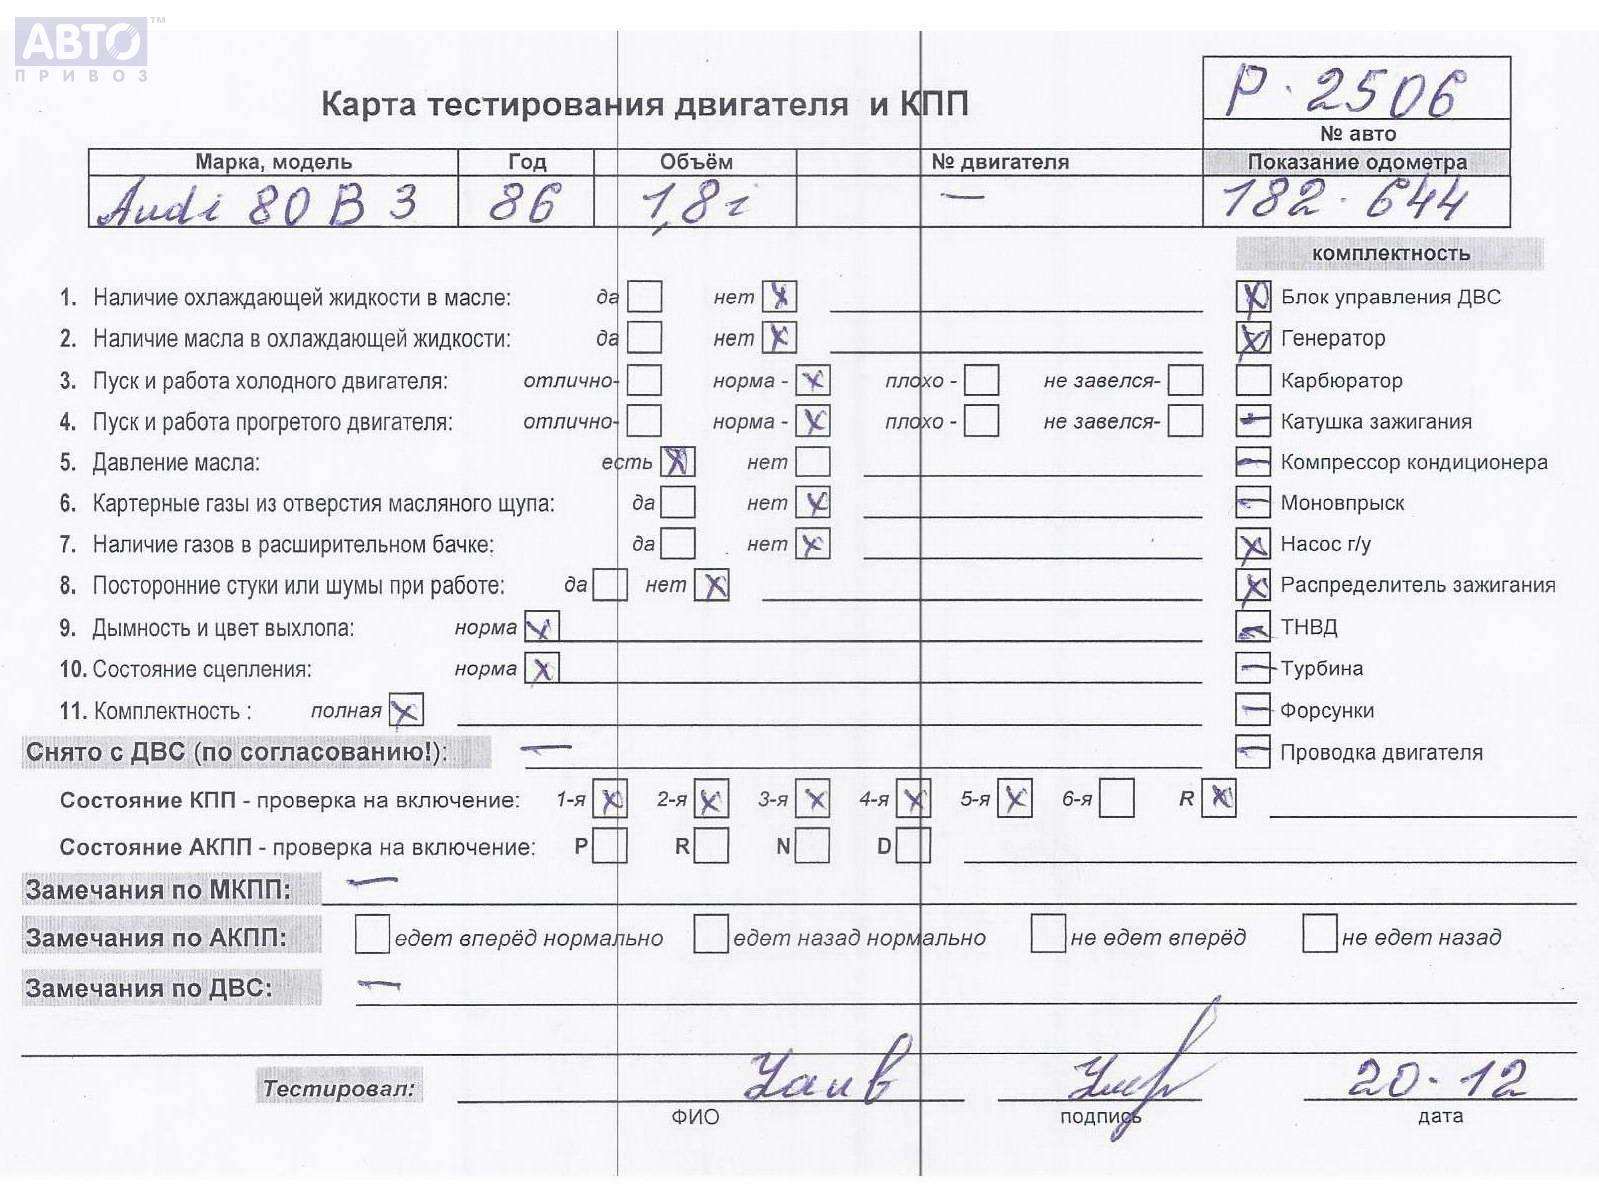 АВТО™
ПРИВОЗ
Р·2506
Карта тестирования двигателя и КПП
№ авто
Марка, модель Год Объём № двигателя Показание одометра
Audi 80 B3 86 1,8i — 182·644
комплектность
1. Наличие охлаждающей жидкости в масле: да нет x Блок управления ДВС
2. Наличие масла в охлаждающей жидкости: да нет x Генератор
3. Пуск и работа холодного двигателя: отлично- норма - x плохо - не завелся- Карбюратор
4. Пуск и работа прогретого двигателя: отлично- норма - x плохо - не завелся- Катушка зажигания
5. Давление масла: есть x нет Компрессор кондиционера
6. Картерные газы из отверстия масляного щупа: да нет x Моновпрыск
7. Наличие газов в расширительном бачке: да нет x Насос г/у
8. Посторонние стуки или шумы при работе: да нет x Распределитель зажигания
9. Дымность и цвет выхлопа: норма x ТНВД
10. Состояние сцепления: норма x Турбина
11. Комплектность : полная x Форсунки
Снято с ДВС (по согласованию!): — Проводка двигателя
Состояние КПП - проверка на включение: 1-я x 2-я x 3-я x 4-я x 5-я x 6-я R x
Состояние АКПП - проверка на включение: P R N D
Замечания по МКПП: —
Замечания по АКПП: едет вперёд нормально едет назад нормально не едет вперёд не едет назад
Замечания по ДВС: —
Тестировал: 20·12
ФИО подпись дата